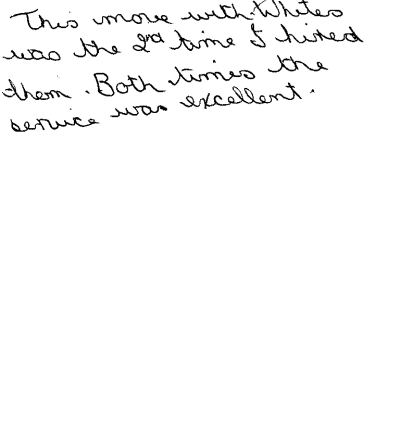 This move with Whites
was the 2nd time I hired
them. Both times the
service was excellent.